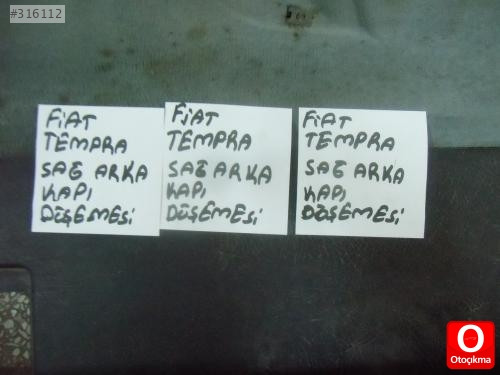 #316112
FiAT
TEMPRA
SAĞ ARKA
KAPI
DÖŞEMESi
FiAT
TEMPRA
SAĞ ARKA
KAPI
DÖŞEMESi
FiAT
TEMPRA
SAĞ ARKA
KAPI
DÖŞEMESi
O
Otoçıkma